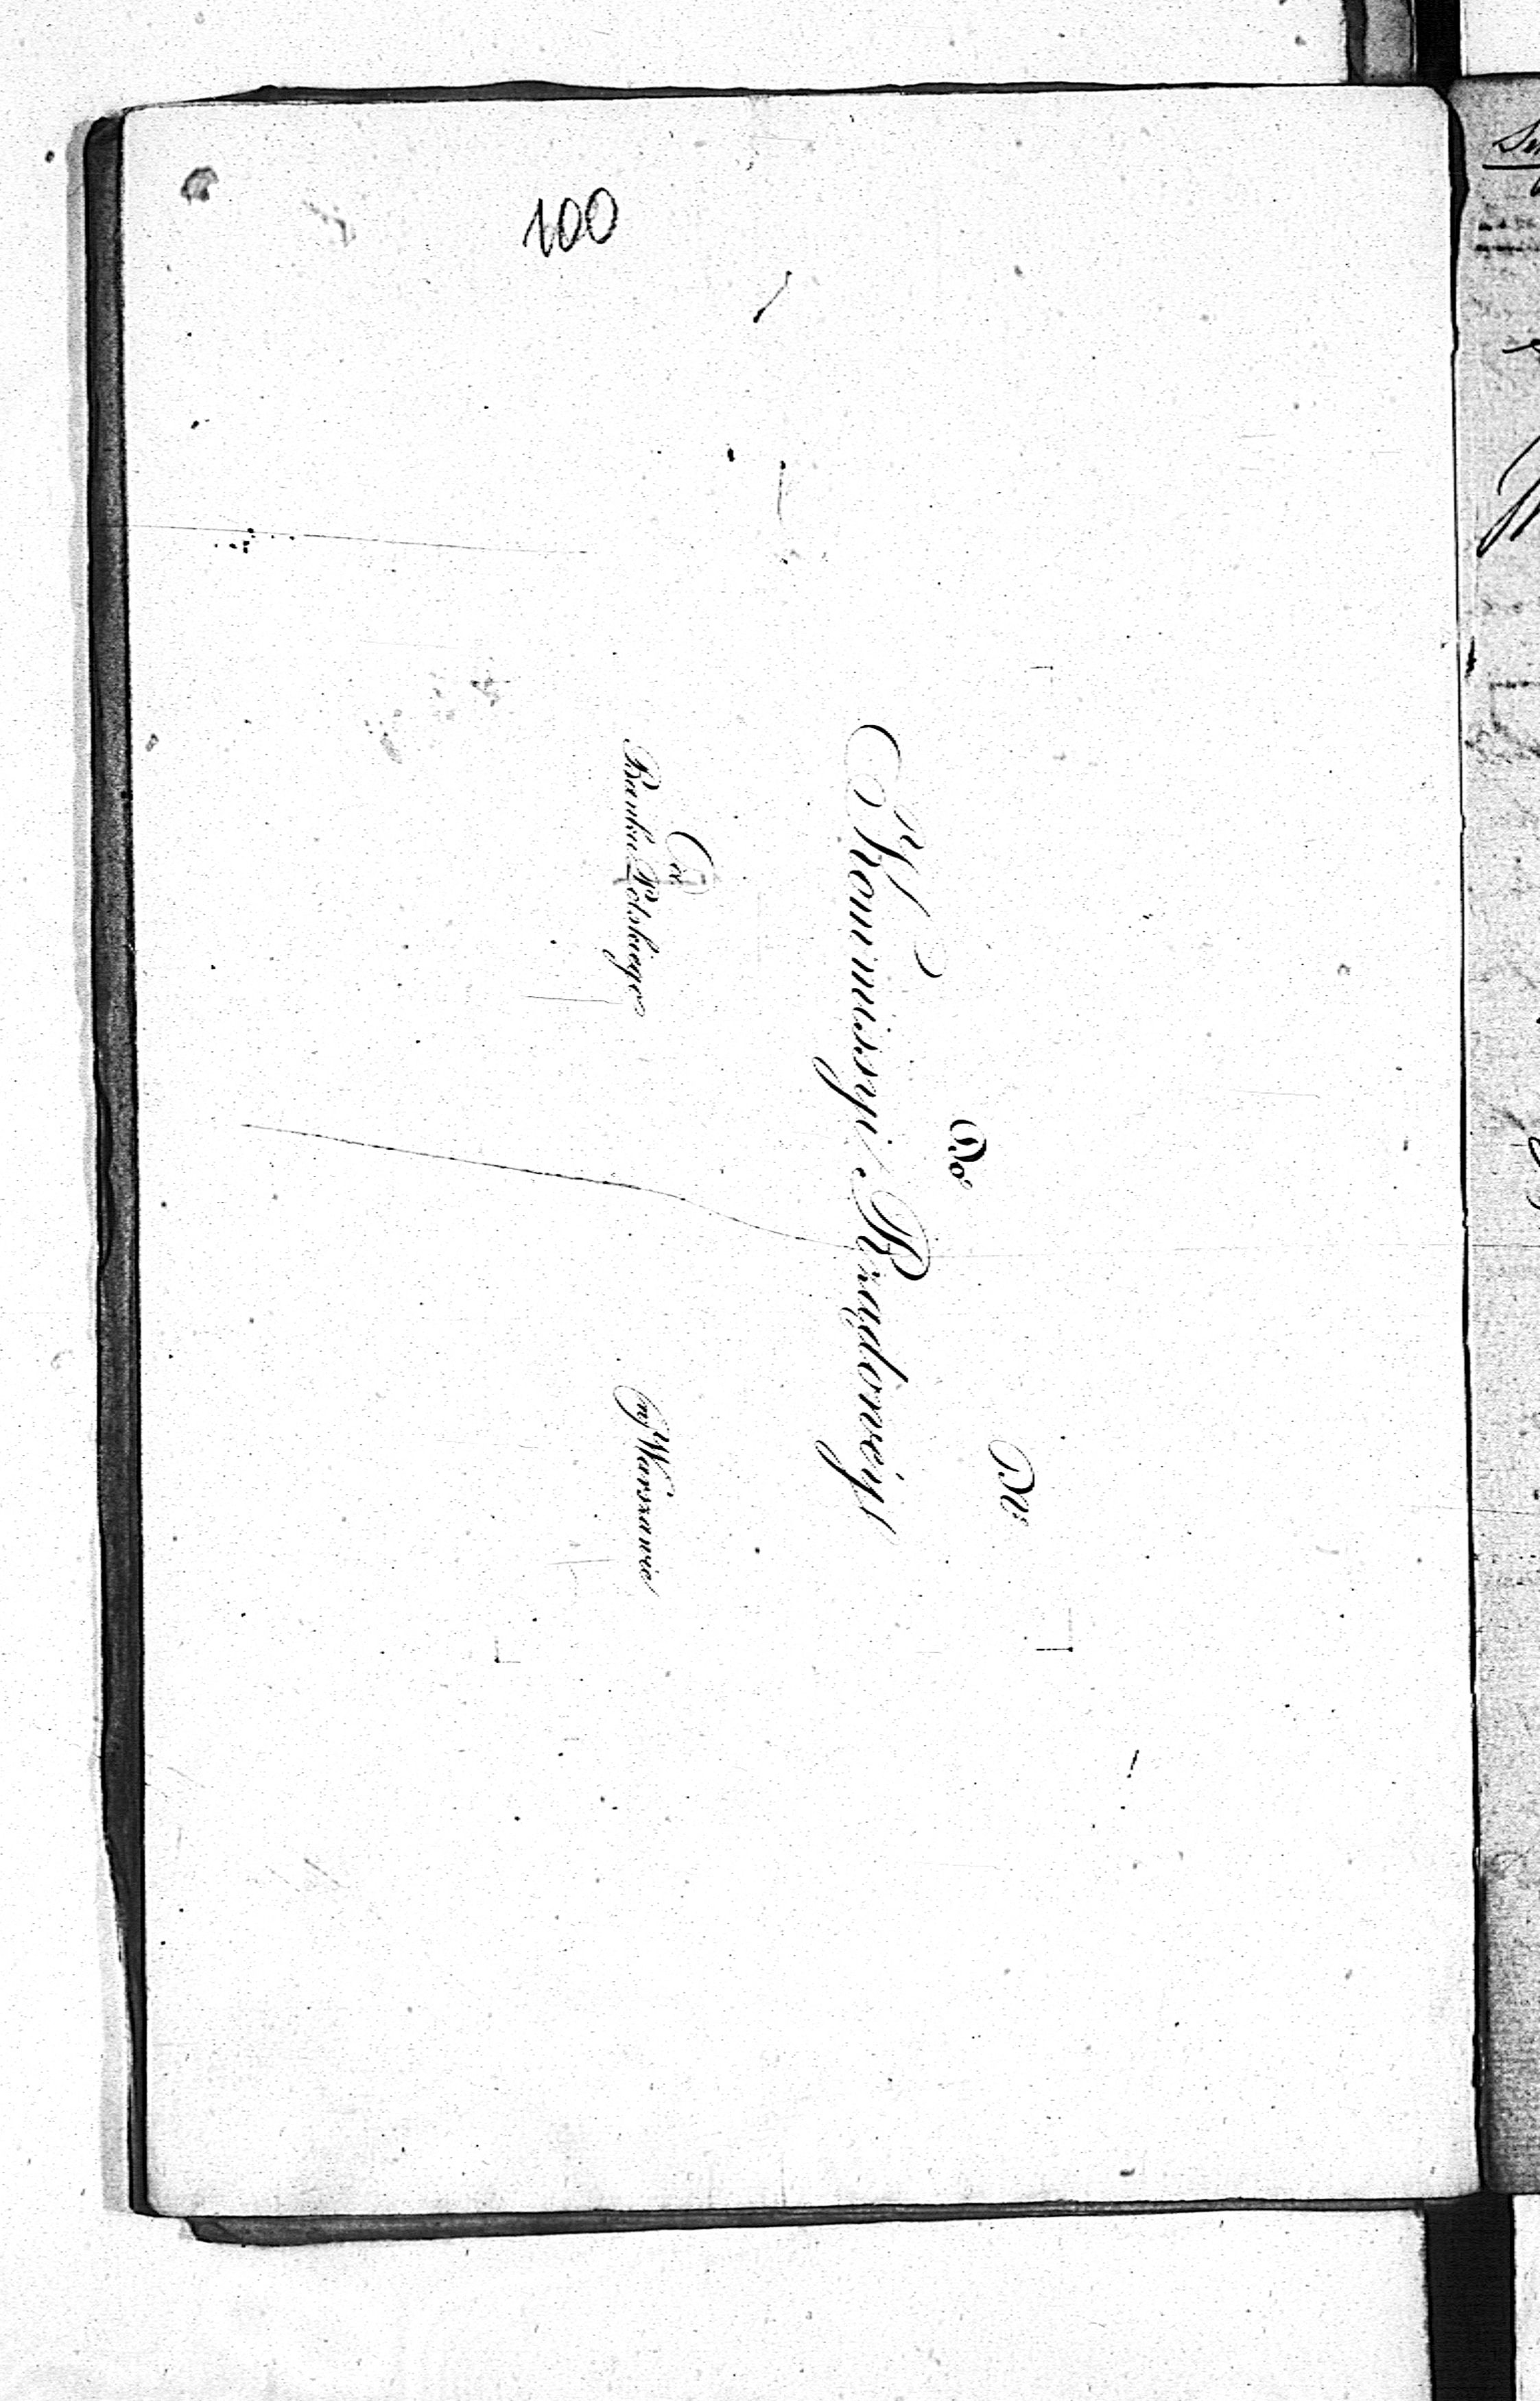 100
No
Do
Kommissyi Rządowéy
Od
Banku Polskiego
w Warszawie